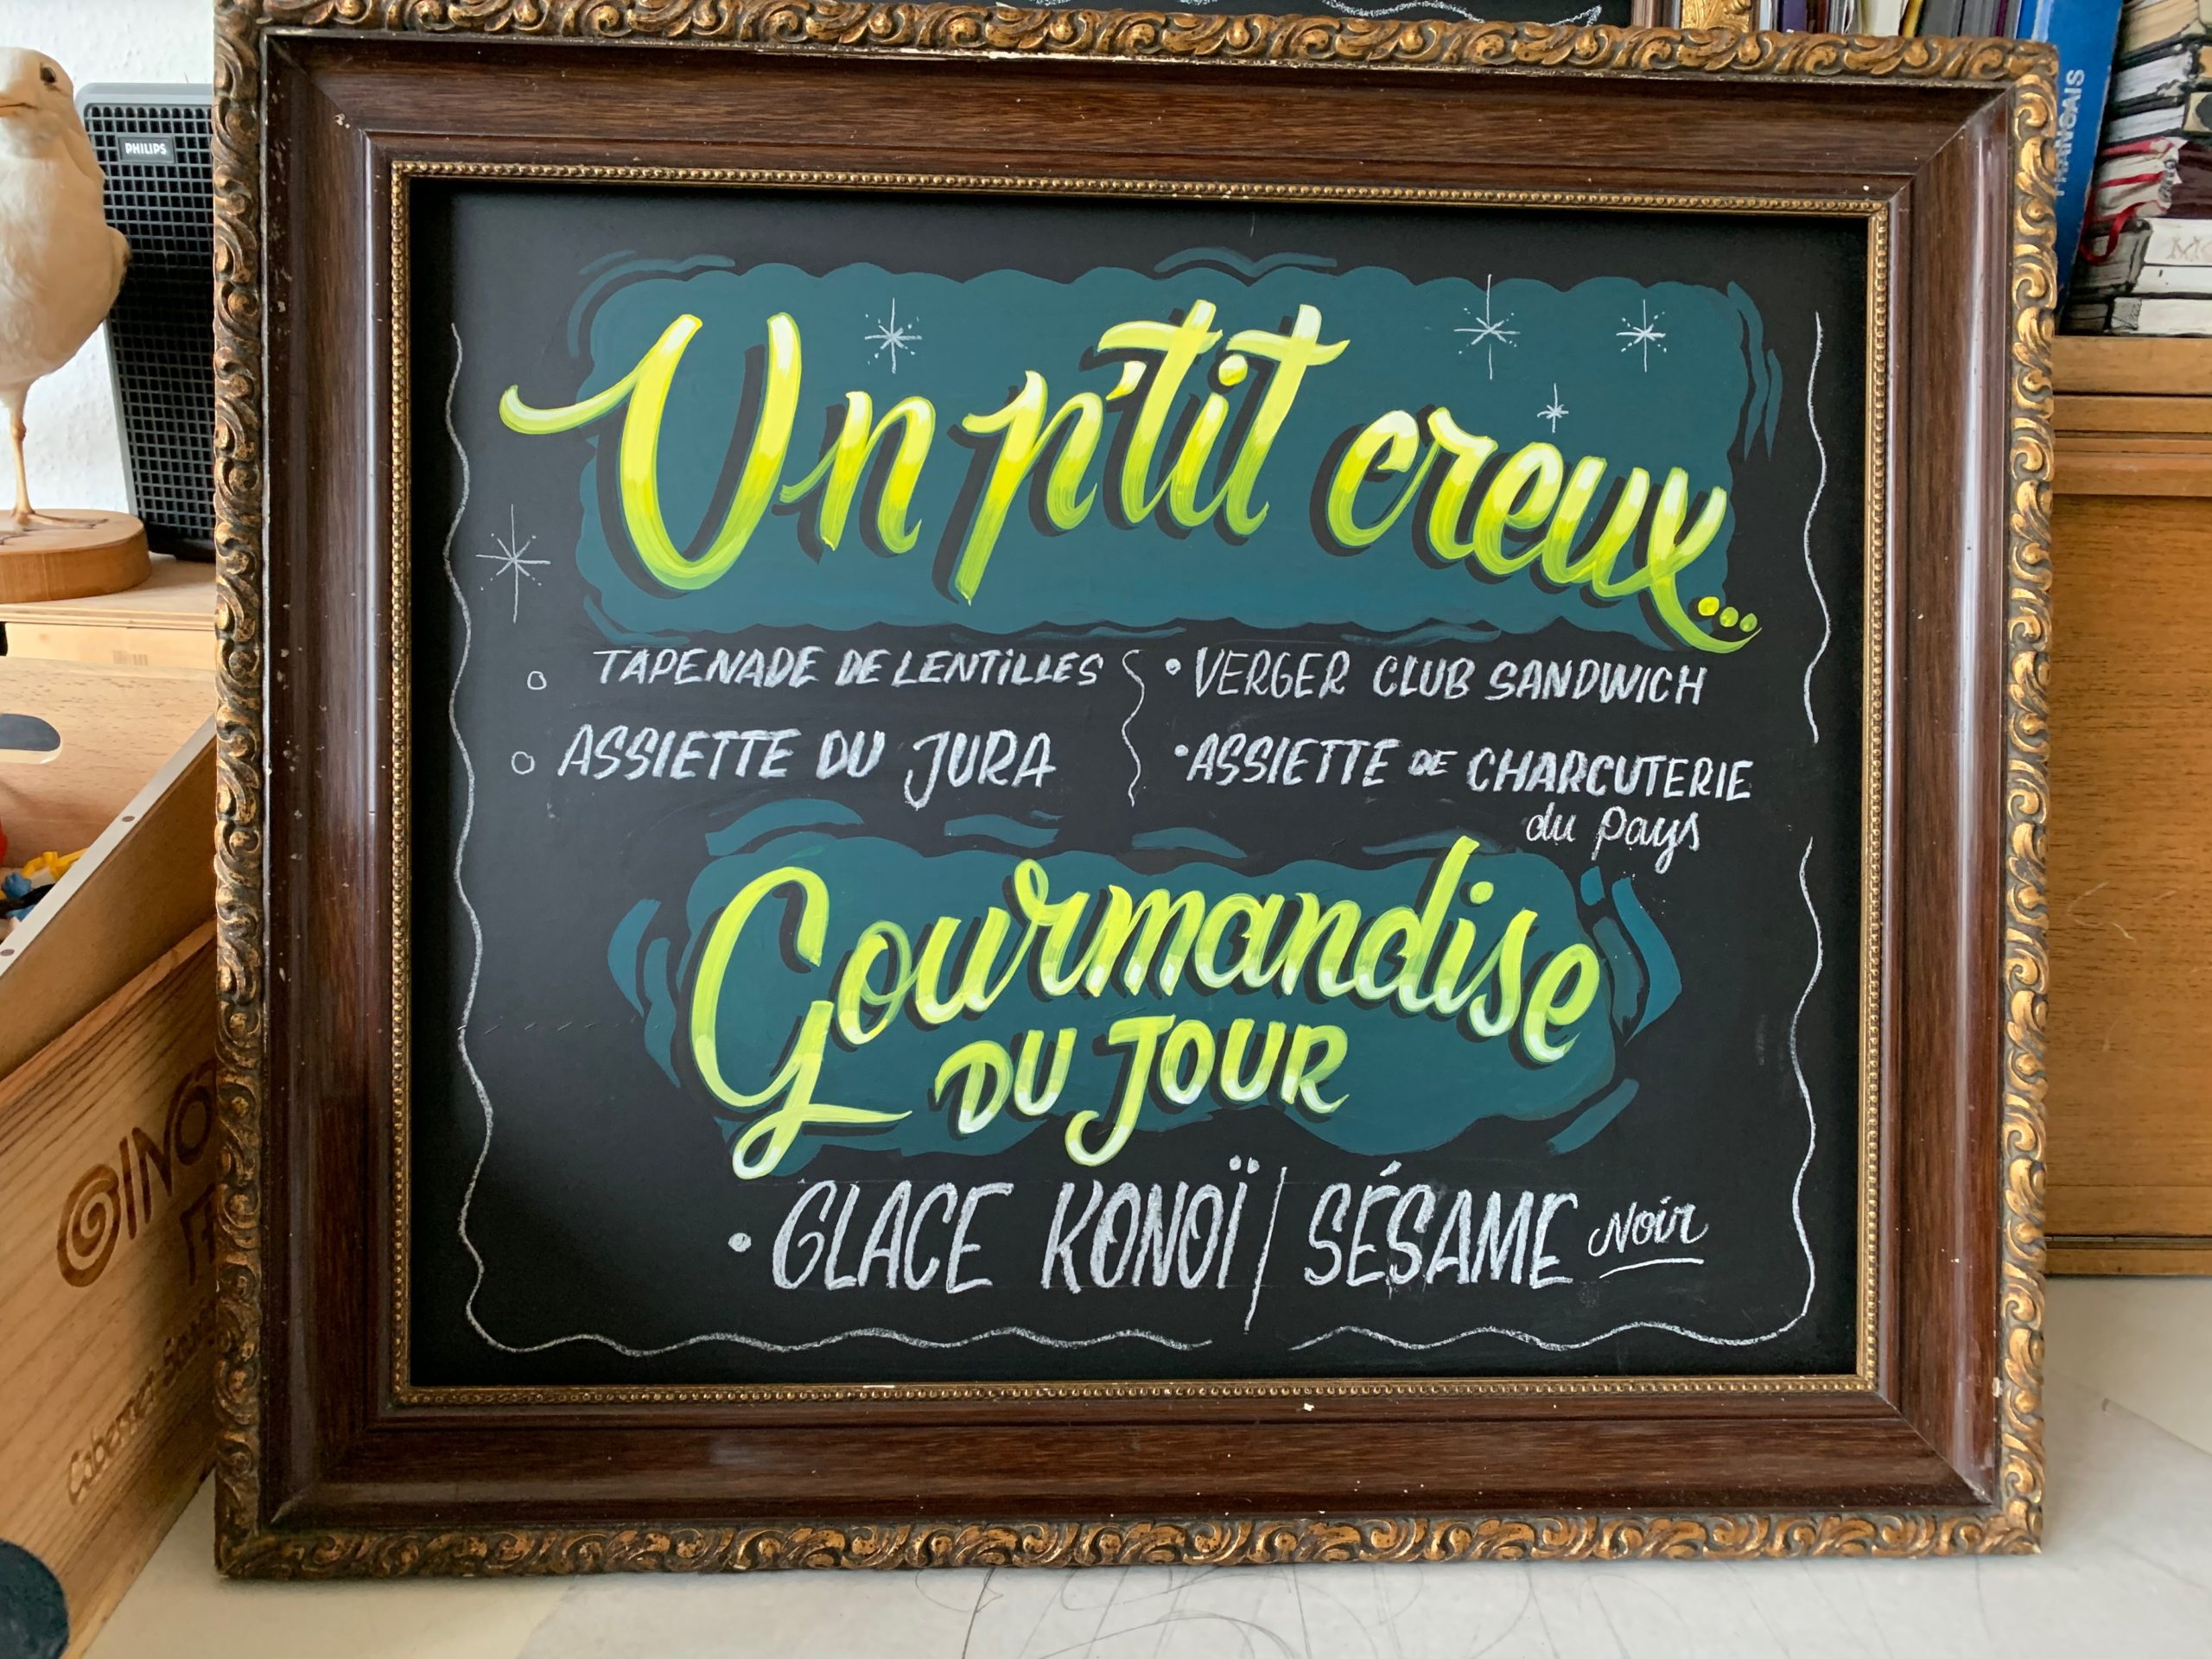 PHILIPS
FRANÇAIS
Un p'tit creux...
TAPENADE DE LENTILLES
ASSIETTE DU JURA
• VERGER CLUB SANDWICH
• ASSIETTE DE CHARCUTERIE
du pays
Gourmandise
DU JOUR
• GLACE KONOÏ / SÉSAME Noir